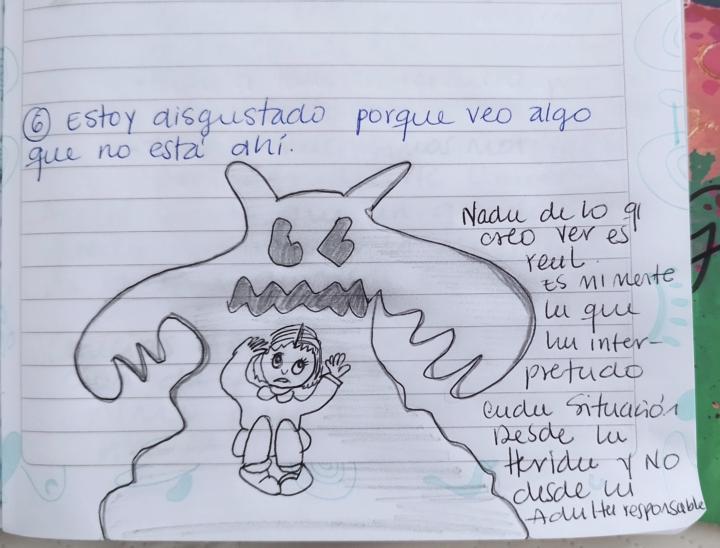 ⑥ Estoy disgustado porque veo algo
que no está ahí.
Nada de lo q'
creo ver es
real.
Es mi mente
la que
ha inter-
pretado
cada situación
desde la
Herida y NO
desde la
Adulta responsable